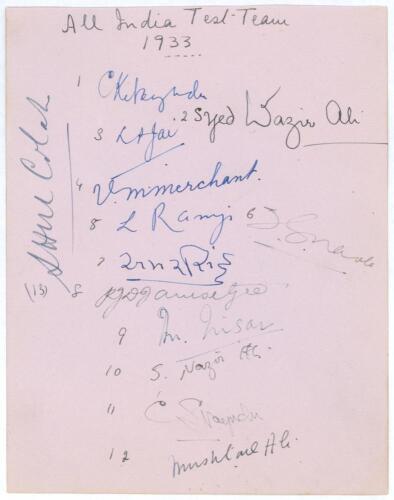 All India Test-Team
1933
1 C K Nayudu
2 Syed Wazir Ali
3 L P Jai
4 V. m merchant.
5 L Ramji
6 J. G. Navle
7 અમરસિંહ
8 R J D Jamsetjee
9 M. Nisar
10 S. Nazir Ali.
11 C S Nayudu
12 Mushtaq Ali.
(13) S H M Colah